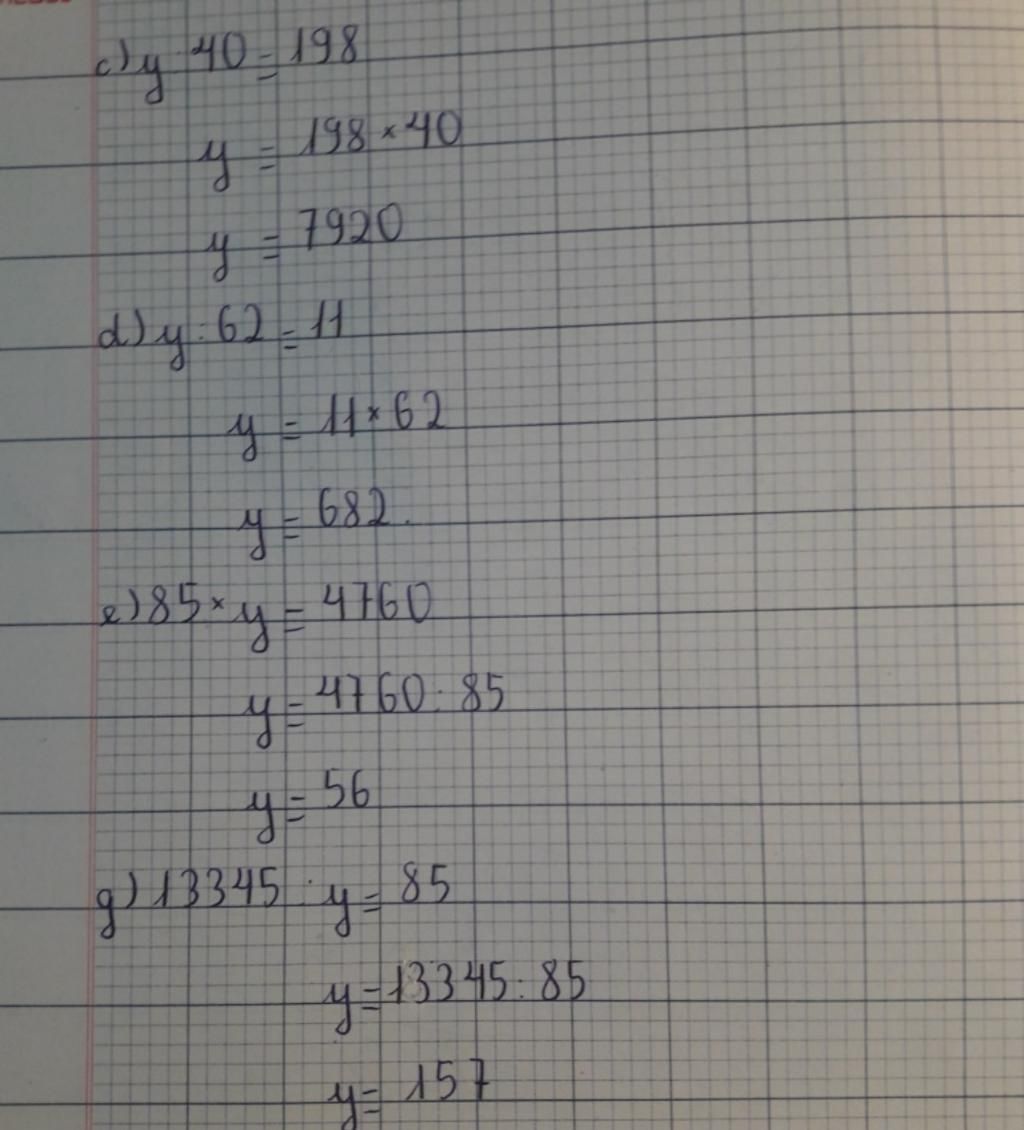 c) y : 40 = 198
y = 198 × 40
y = 7920
d) y : 62 = 11
y = 11 × 62
y = 682.
e) 85 × y = 4760
y = 4760 : 85
y = 56
g) 13345 : y = 85
y = 13345 : 85
y = 157